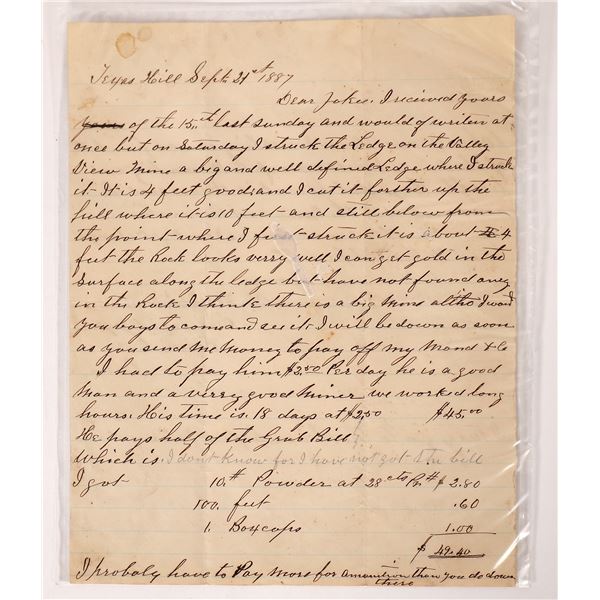 Texas Hill Sept. 21st 1887
Dear Jikie. I received yours
yours of the 15.th last sunday and would of writen at
once but on Saturday I struck the Ledge on the Valley
View Mine a big and well defined Ledge where I struck
it. It is 4 feet good; and I cut it forther up the
hill where it is 10 feet and still below from
the point where I first struck it it is about 4
feet the Rock looks verry well I can get gold in the
Surface along the ledge but have not found any
in the Rock I think there is a big Mine altho I want
you boys to com and see it. I will be down as soon
as you send me money to pay off my Mand & Co
I had to pay him $2.50 Per day he is a good
Man and a verry good Miner we worked long
hours. His time is. 18 days at $2.50 $45.00
He pays half of the Grub Bill
Which is. I dont know for I have not got the bill
I got 10.# Powder at 28 cts Pr # $2.80
100. feet .60
1. Box caps 1.00
$ 49.40
I probaly have to Pay More for amunition than you do down
there